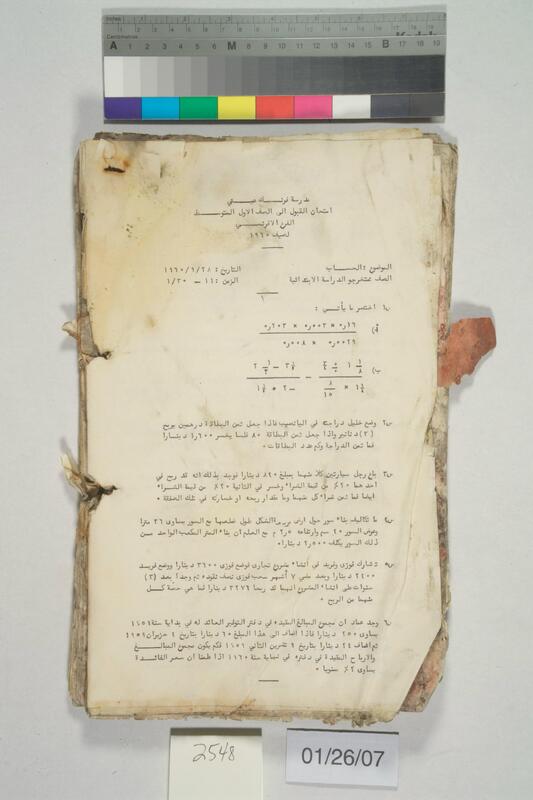 Inches
Centimetres
Kodak
A 1 2 3 4 5 6 M 8 9 10 11 12 13 14 15 B 17 18 19
مدرسة فرنك عيني
امتحان القبول الى الصف الاول المتوسط
الفرع الافرنسي
لصيف ١٩٦٠
الموضوع : الحساب
التاريخ : ١٩٦٠/٦/٢٨
الصف متخرجو الدراسة الابتدائية
الزمن : ١١ – ١/٣٠
١
س١ اختصر ما يأتي :
س٢ وضع خليل دراجته في اليانصيب فاذا جعل ثمن البطاقة درهمين يربح
(٢) دنانير واذا جعل ثمن البطاقة ٨٠ فلسا يخسر ١٦٠٠ دينارا
فما ثمن الدراجة وكم عدد البطاقات ٠
س٣ باع رجل سيارتين كلا منهما بمبلغ ٨٢٠ دينارا فوجد بذلك انه قد ربح في
احدهما ٢٠٪ من قيمة الشراء وخسر في الثانية ٢٠٪ من قيمة الشراء
ايضا فما ثمن شراء كل منهما وما مقدار ربحه او خسارته في تلك الصفقة ٠
س٤ ما تكاليف بناء سور حول ارض مربعة الشكل طول ضلعها مع السور يساوي ٣٦ مترا
وعرض السور ٢٠ سم وارتفاعه ٢٫٥ م مع العلم ان بناء المتر المكعب الواحد من
ذلك السور يكلف ٢٫٥٠٠ دينارا ٠
س٥ تشارك فوزي وفريد في انشاء مشروع تجاري فوضع فوزي ٣٦٠٠ دينارا ووضع فريد
٢٤٠٠ دينارا وبعد مضي ٧ أشهر سحب فوزي نصف نقوده ثم وجدا بعد (٣)
سنوات على انشاء المشروع انهما قد ربحا ٣٢٧٦ دينارا فما هي حصة كل
منهما من الربح ٠
س٦ وجد عماد ان مجموع المبالغ المقيدة في دفتر التوفير العائد له في بداية سنة ١٩٥٩
يساوي ٢٥٠ دينارا فاذا اضاف الى هذا المبلغ ٦٠ دينارا بتاريخ ٩ حزيران ١٩٥٩
ثم اضاف ٢٤ دينارا بتاريخ ٩ تشرين الثاني ١٩٥٩ فكم يكون مجموع المبالغ
والارباح المقيدة في دفتره في نهاية سنة ١٩٦٠ اذا علمنا ان سعر الفائدة
يساوي ٢٪ سنويا ٠
2548
01/26/07